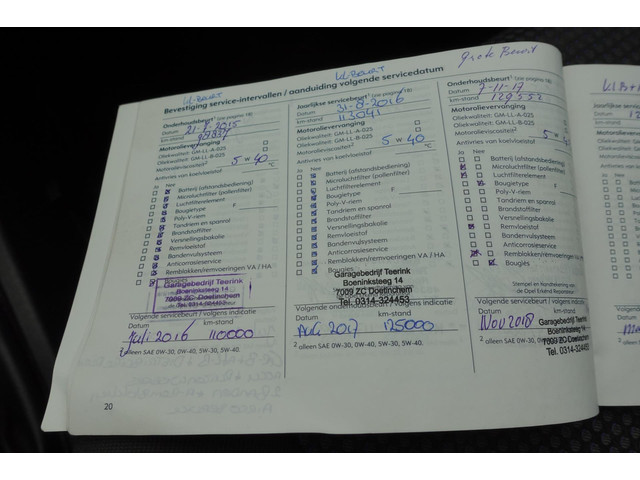 kl. Beurt
kl Beurt
grote Beurt
Bevestiging service-intervallen / aanduiding volgende servicedatum
Onderhoudsbeurt¹ (zie pagina 18)
Datum
km-stand
Motorolievervanging
Oliekwaliteit: GM-LL-A-025
Oliekwaliteit: GM-LL-B-025
Motorolieviscositeit² 5 w 40
Antivries van koelvloeistof °C
Ja Nee
Batterij (afstandsbediening)
Microluchtfilter (pollenfilter)
Luchtfilterelement
Bougietype F
Poly-V-riem
Tandriem en spanrol
Brandstoffilter
Versnellingsbakolie
Remvloeistof
Bandenvulsysteem
Anticorrosieservice
Remblokken/remvoeringen VA / HA
Garagebedrijf Teerink
Boeninksteeg 14
7009 ZC Doetinchem
Tel. 0314-324453
Volgende servicebeurt / volgens indicatie
Datum km-stand
Juli 2016 110000
² alleen SAE 0W-30, 0W-40, 5W-30, 5W-40.
20
Jaarlijkse servicebeurt¹ (zie pagina 18)
Datum 31-8-2016
km-stand 113041
Motorolievervanging
Oliekwaliteit: GM-LL-A-025
Oliekwaliteit: GM-LL-B-025
Motorolieviscositeit² 5 w 40
Antivries van koelvloeistof °C
Ja Nee
Batterij (afstandsbediening)
Microluchtfilter (pollenfilter)
Luchtfilterelement
Bougietype F
Poly-V-riem
Tandriem en spanrol
Brandstoffilter
Versnellingsbakolie
Remvloeistof
Bandenvulsysteem
Anticorrosieservice
Remblokken/remvoeringen VA / HA
Garagebedrijf Teerink
Boeninksteeg 14
7009 ZC Doetinchem
Tel. 0314-324453
Volgende onderhoudsbeurt / volgens indicatie
Datum km-stand
Aug 2017 125000
² alleen SAE 0W-30, 0W-40, 5W-30, 5W-40.
Onderhoudsbeurt¹ (zie pagina 18)
Datum 7-11-17
km-stand 129552
Motorolievervanging
Oliekwaliteit: GM-LL-A-025
Oliekwaliteit: GM-LL-B-025
Motorolieviscositeit² 5 w
Antivries van koelvloeistof
Ja Nee
Batterij (afstandsbediening)
Microluchtfilter (pollenfilter)
Luchtfilterelement
Bougietype F
Poly-V-riem
Tandriem en spanrol
Brandstoffilter
Versnellingsbakolie
Remvloeistof
Bandenvulsysteem
Anticorrosieservice
Remblokken/remvoeringen
Bougies
Stempel en handtekening van
de Opel Erkend Reparateur
Volgende servicebeurt / volgens indicatie
Datum
Nov 2018
Garagebedrijf Teerink
Boeninksteeg 14
7009 ZC Doetinchem
Tel. 0314-324453
² alleen SAE 0W-30, 0W-40, 5W-30, 5W-40.